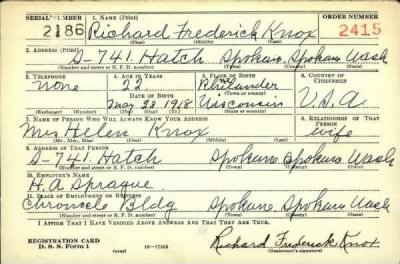 SERIAL NUMBER 1. NAME (Print) ORDER NUMBER
2186 Richard Frederick Knox 2415
(First) (Middle) (Last)
2. ADDRESS (Print)
S-741 Hatch Spokane, Spokane Wash
(Number and street or R. F. D. number) (Town) (County) (State)
3. TELEPHONE 4. AGE IN YEARS 5. PLACE OF BIRTH 6. COUNTRY OF CITIZENSHIP
none 22 Rhinlander
DATE OF BIRTH (Town or county)
May 23 1918 Wisconsin U.S.A
(Mo.) (Day) (Yr.) (State or country)
7. NAME OF PERSON WHO WILL ALWAYS KNOW YOUR ADDRESS 8. RELATIONSHIP OF THAT PERSON
Mrs Helen Knox wife
(Mr., Mrs., Miss) (First) (Middle) (Last)
9. ADDRESS OF THAT PERSON
S-741 Hatch Spokane Spokane Wash
(Number and street or R. F. D. number) (Town) (County) (State)
10. EMPLOYER'S NAME
H. A Sprague
11. PLACE OF EMPLOYMENT OR BUSINESS
Chronicle Bldg Spokane, Spokane Wash
(Number and street or R. F. D. number) (Town) (County) (State)
I AFFIRM THAT I HAVE VERIFIED ABOVE ANSWERS AND THAT THEY ARE TRUE.
REGISTRATION CARD
D. S. S. Form 1 (over) 16-17105 Richard Frederick Knox
(Registrant's signature)